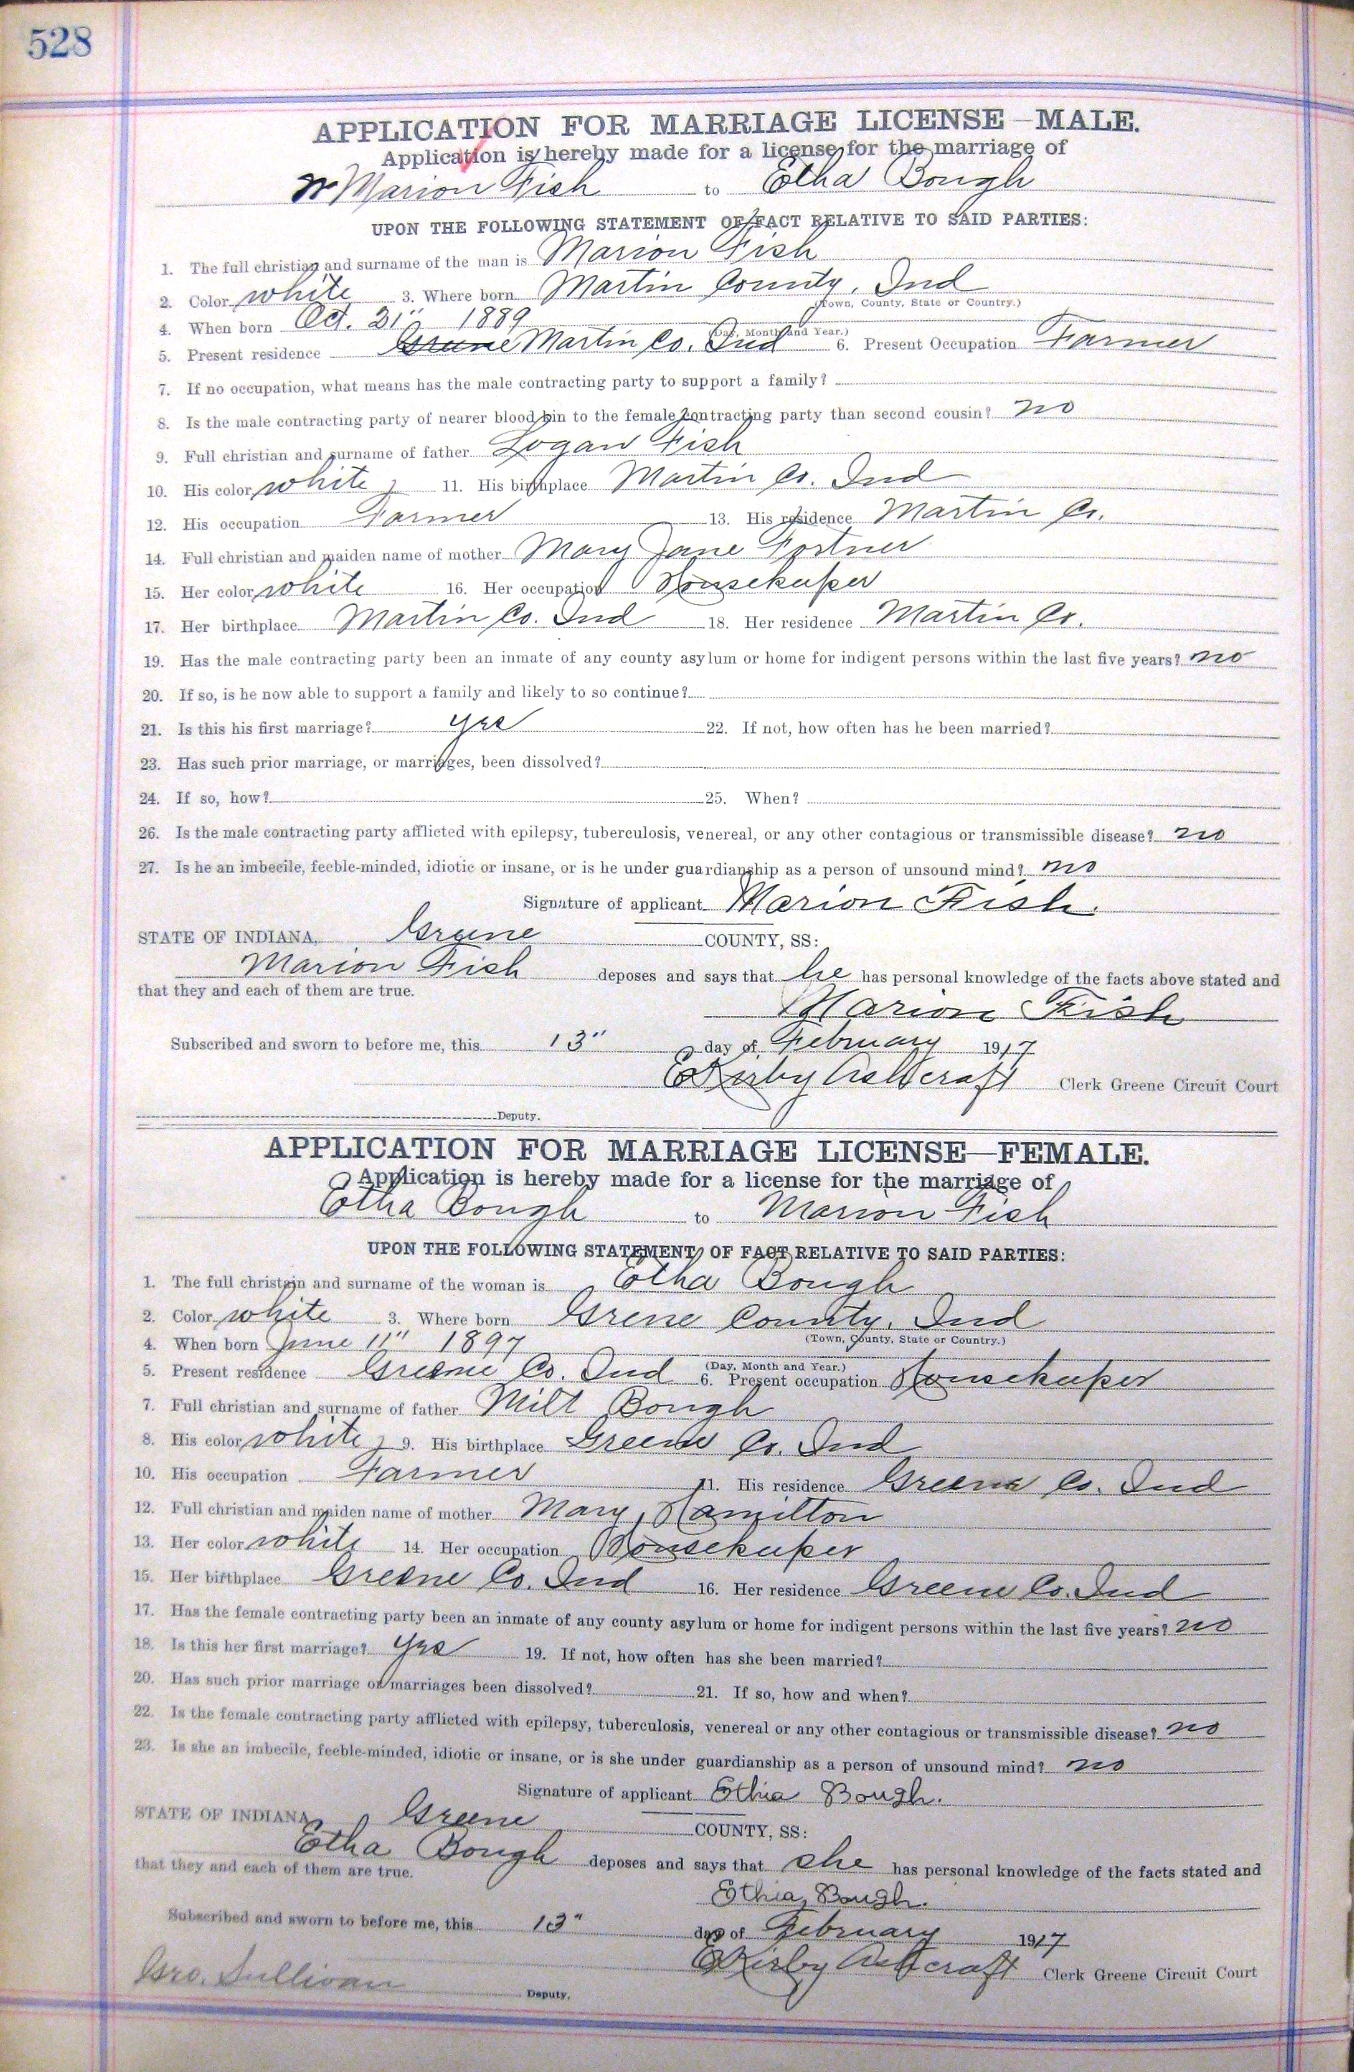 528
APPLICATION FOR MARRIAGE LICENSE—MALE.
Application is hereby made for a license for the marriage of
Marion Fish to Etha Bough
UPON THE FOLLOWING STATEMENT OF FACT RELATIVE TO SAID PARTIES:
1. The full christian and surname of the man is Marion Fish
2. Color white 3. Where born Martin County, Ind
(Town, County, State or Country.)
4. When born Oct. 31" 1889
(Day, Month and Year.)
5. Present residence Greene Martin Co. Ind 6. Present Occupation Farmer
7. If no occupation, what means has the male contracting party to support a family?
8. Is the male contracting party of nearer blood kin to the female contracting party than second cousin? no
9. Full christian and surname of father Logan Fish
10. His color white 11. His birthplace Martin Co. Ind
12. His occupation Farmer 13. His residence Martin Co.
14. Full christian and maiden name of mother Mary Jane Fortner
15. Her color white 16. Her occupation Housekeeper
17. Her birthplace Martin Co. Ind 18. Her residence Martin Co.
19. Has the male contracting party been an inmate of any county asylum or home for indigent persons within the last five years? no
20. If so, is he now able to support a family and likely to so continue?
21. Is this his first marriage? yes 22. If not, how often has he been married?
23. Has such prior marriage, or marriages, been dissolved?
24. If so, how? 25. When?
26. Is the male contracting party afflicted with epilepsy, tuberculosis, venereal, or any other contagious or transmissible disease? no
27. Is he an imbecile, feeble-minded, idiotic or insane, or is he under guardianship as a person of unsound mind? no
Signature of applicant Marion Fish.
STATE OF INDIANA, Greene COUNTY, SS:
Marion Fish deposes and says that he has personal knowledge of the facts above stated and
that they and each of them are true.
Marion Fish
Subscribed and sworn to before me, this 13" day of February 1917
E Kirby Ashcraft Clerk Greene Circuit Court
Deputy.
APPLICATION FOR MARRIAGE LICENSE—FEMALE.
Application is hereby made for a license for the marriage of
Etha Bough to Marion Fish
UPON THE FOLLOWING STATEMENT OF FACT RELATIVE TO SAID PARTIES:
1. The full christain and surname of the woman is Etha Bough
2. Color white 3. Where born Grene County, Ind
(Town, County, State or Country.)
4. When born June 11" 1897
(Day, Month and Year.)
5. Present residence Greene Co. Ind 6. Present occupation Housekeeper
7. Full christian and surname of father Milt Bough
8. His color white 9. His birthplace Greene Co. Ind
10. His occupation Farmer 11. His residence Greene Co. Ind
12. Full christian and maiden name of mother Mary Hamilton
13. Her color white 14. Her occupation Housekeeper
15. Her birthplace Greene Co. Ind 16. Her residence Greene Co. Ind
17. Has the female contracting party been an inmate of any county asylum or home for indigent persons within the last five years? no
18. Is this her first marriage? yes 19. If not, how often has she been married?
20. Has such prior marriage or marriages been dissolved? 21. If so, how and when?
22. Is the female contracting party afflicted with epilepsy, tuberculosis, venereal or any other contagious or transmissible disease? no
23. Is she an imbecile, feeble-minded, idiotic or insane, or is she under guardianship as a person of unsound mind? no
Signature of applicant Ethia Bough.
STATE OF INDIANA Greene COUNTY, SS:
Etha Bough deposes and says that she has personal knowledge of the facts stated and
that they and each of them are true.
Ethia Bough.
Subscribed and sworn to before me, this 13" day of February 1917
E Kirby Ashcraft Clerk Greene Circuit Court
Geo. Sullivan Deputy.